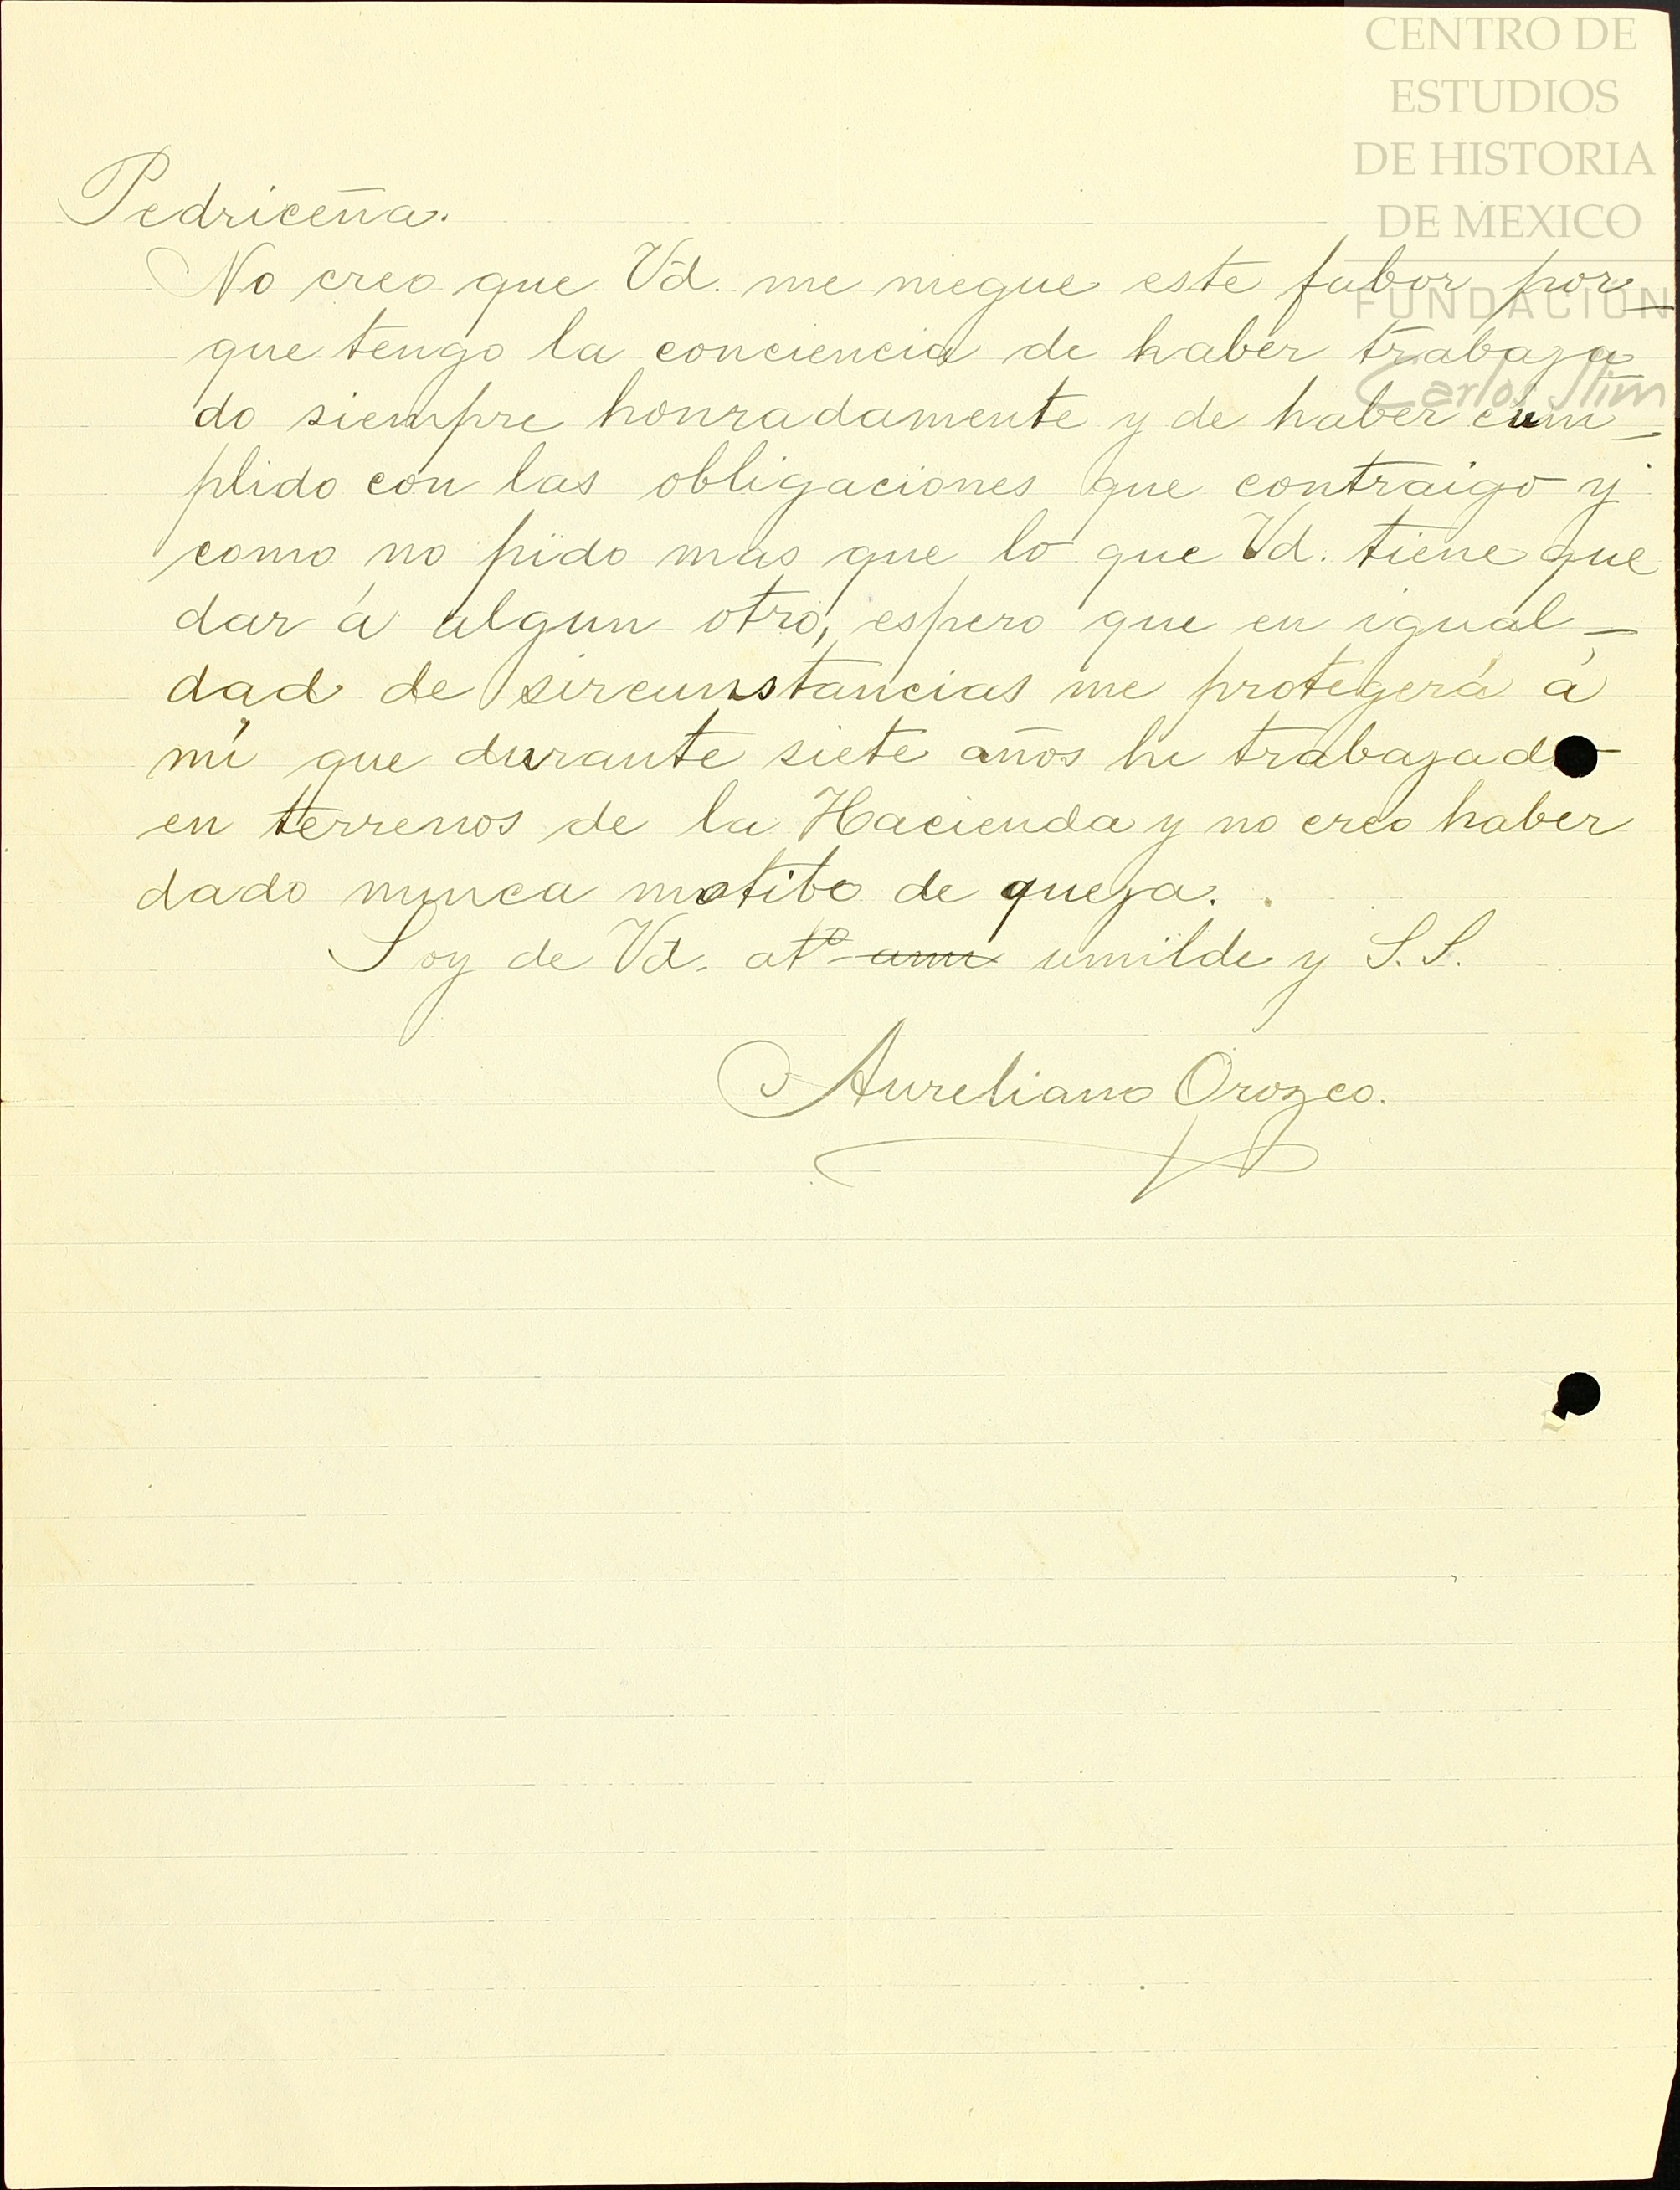 CENTRO DE
ESTUDIOS
DE HISTORIA
DE MEXICO
FUNDACION
Carlos Slim
Pedriceña.
No creo que Vd. me niegue este fabor por_
que tengo la conciencia de haber trabaja_
do siempre honradamente y de haber cum_
plido con las obligaciones que contraigo y
como no pido mas que lo que Vd. tiene que
dar á algun otro, espero que en igual_
dad de sircunstancias me protegerá á
mi que durante siete años he trabajado
en terrenos de la Hacienda y no creo haber
dado nunca motibo de queja.
Soy de Vd. atº ami umilde y S. S.
Aureliano Orozco.